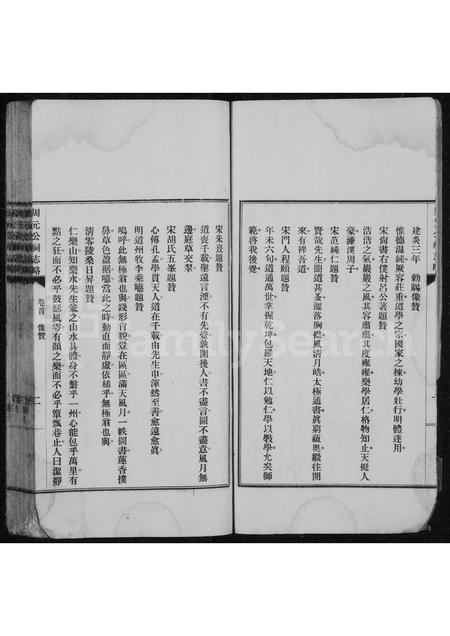 建炎三年　勅賜像贊
惟德温純厥容莊重道學之宗國家之棟幼學壯行明體達用
宋尚書右僕射呂公著題贊
浩浩之氣巖巖之風其容肅肅其度雍雍樂學居仁格物知止天挺人
豪濂溪周子
宋范純仁題贊
賢哉先生聞道甚蚤灑落胸襟風清月皓太極通書眞窮蘊奥繼往開
來有裨吾道
宋門人程頤題贊
年未六旬道通萬世掌握乾坤包羅天地仁以勉仁學以斅學允矣師
範啓我後覺
宋朱熹題贊
道喪千載聖遠言湮不有先覺孰開後人書不盡言圖不盡意風月無
邊庭草交翠
宋胡氏五峯題贊
心傳孔孟學貫天人道在千載由先生申渾然至善愈遠愈眞
明道州牧李乘題贊
嗚呼此無極翁也與踐形肖貌豈在區區滿天風月一帙圖書蓮香撲
鼻草色盈裾噫當此之時動直而靜虛依稀乎無極翁也與
清零陵桑日昇題贊
仁樂山知樂水先生兼之山水具體身不繫乎一州心能包乎萬里有
點之狂而不必乎鼓瑟風雩有顔之樂而不必乎簞瓢巷止人曰潔靜
周元公祠志略
卷首　像贊
二
FamilySearch